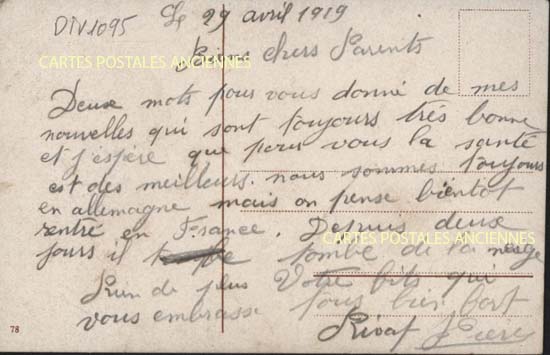 DIV1095
Le 29 avril 1919
Bien chers Parents
CARTES POSTALES ANCIENNES
Deux mots pour vous donné de mes
nouvelles qui sont toujours très bonne
et j'éspère que pour vous la santé
est des meilleurs. nous sommes toujours
en allemagne mais on pense bientot
rentré en France. Depuis deux
CARTES POSTALES ANCIENNES
jours il tombe de la neige
Rien de plus Votre fils qui
vous embrasse tous bien fort
78
Pierre